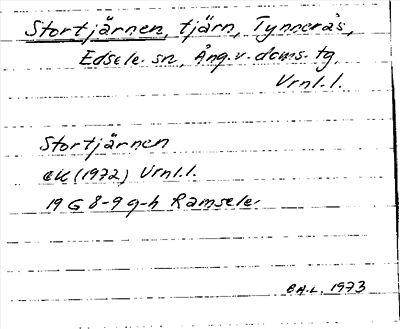 Stortjärnen, tjärn, Tynnerås,
Edsele sn, Ång. v. doms. tg.
Vrnl. l.
Stortjärnen
ek (1972) Vrnl. l.
19 G 8-9 g-h Ramsele.
C A.L. 1973